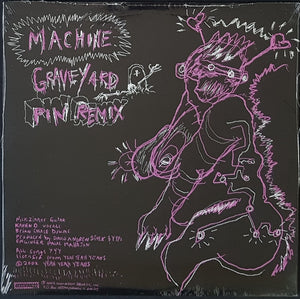 MACHINE.
GRAVEYARD
PIN REMIX
Nick Zinner Guitar
Karen O vocals
Brian Chase Drums
Produced by David Andrew Sitek & YYYs
Engineer Paul Mahajon
All songs YYY
licensed from Yeah Yeah Yeahs
© 2002 Yeah Yeah Yeahs